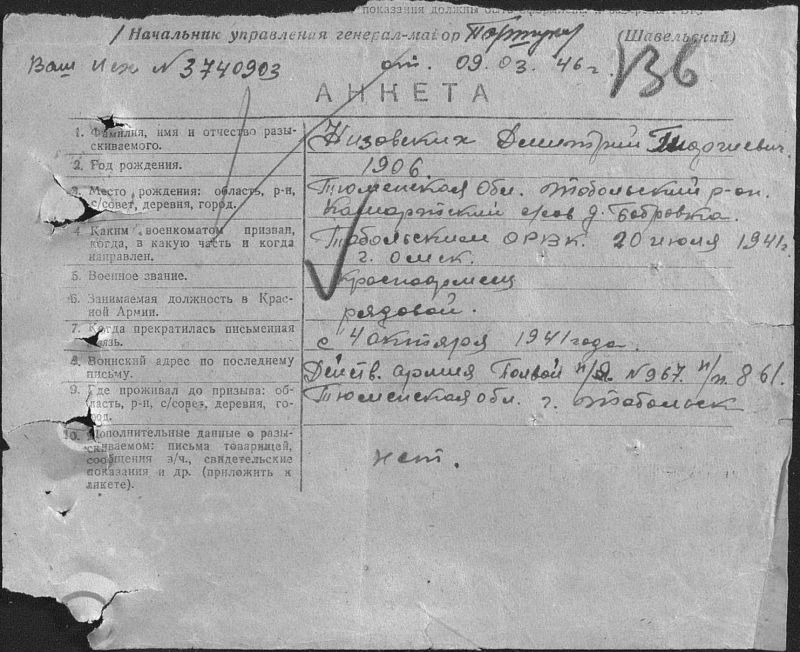 показания должны быть
Начальник управления генерал-майор (Шавельский)
Ваш Исх № 3740903 от. 09.03.46г.
АНКЕТА
1. Фамилия, имя и отчество разы-
скиваемого.
Низовских Димитрий Георгиевич.
2. Год рождения.
1906.
3. Место рождения: область, р-н,
с/совет, деревня, город.
Тюменская Обл. Тобольский р-он.
д. Бобровка.
4. Каким военкоматом призван,
когда, в какую часть и когда
направлен.
Тобольским ОРВК. 20 июля 1941г.
г. Омск.
5. Военное звание.
Красноармеец
6. Занимаемая должность в Крас-
ной Армии.
рядовой.
7. Когда прекратилась письменная
связь.
с 4 октября 1941 года.
8. Воинский адрес по последнему
письму.
Действ. армия Полвой п/я. №967. п/п. 861.
9. Где проживал до призыва: об-
ласть, р-н, с/совет, деревня, го-
род.
Тюменская обл. г. Тобольск
10. Дополнительные данные о разы-
скиваемом: письма товарищей,
сообщения в/ч., свидетельские
показания и др. (приложить к
анкете).
нет.